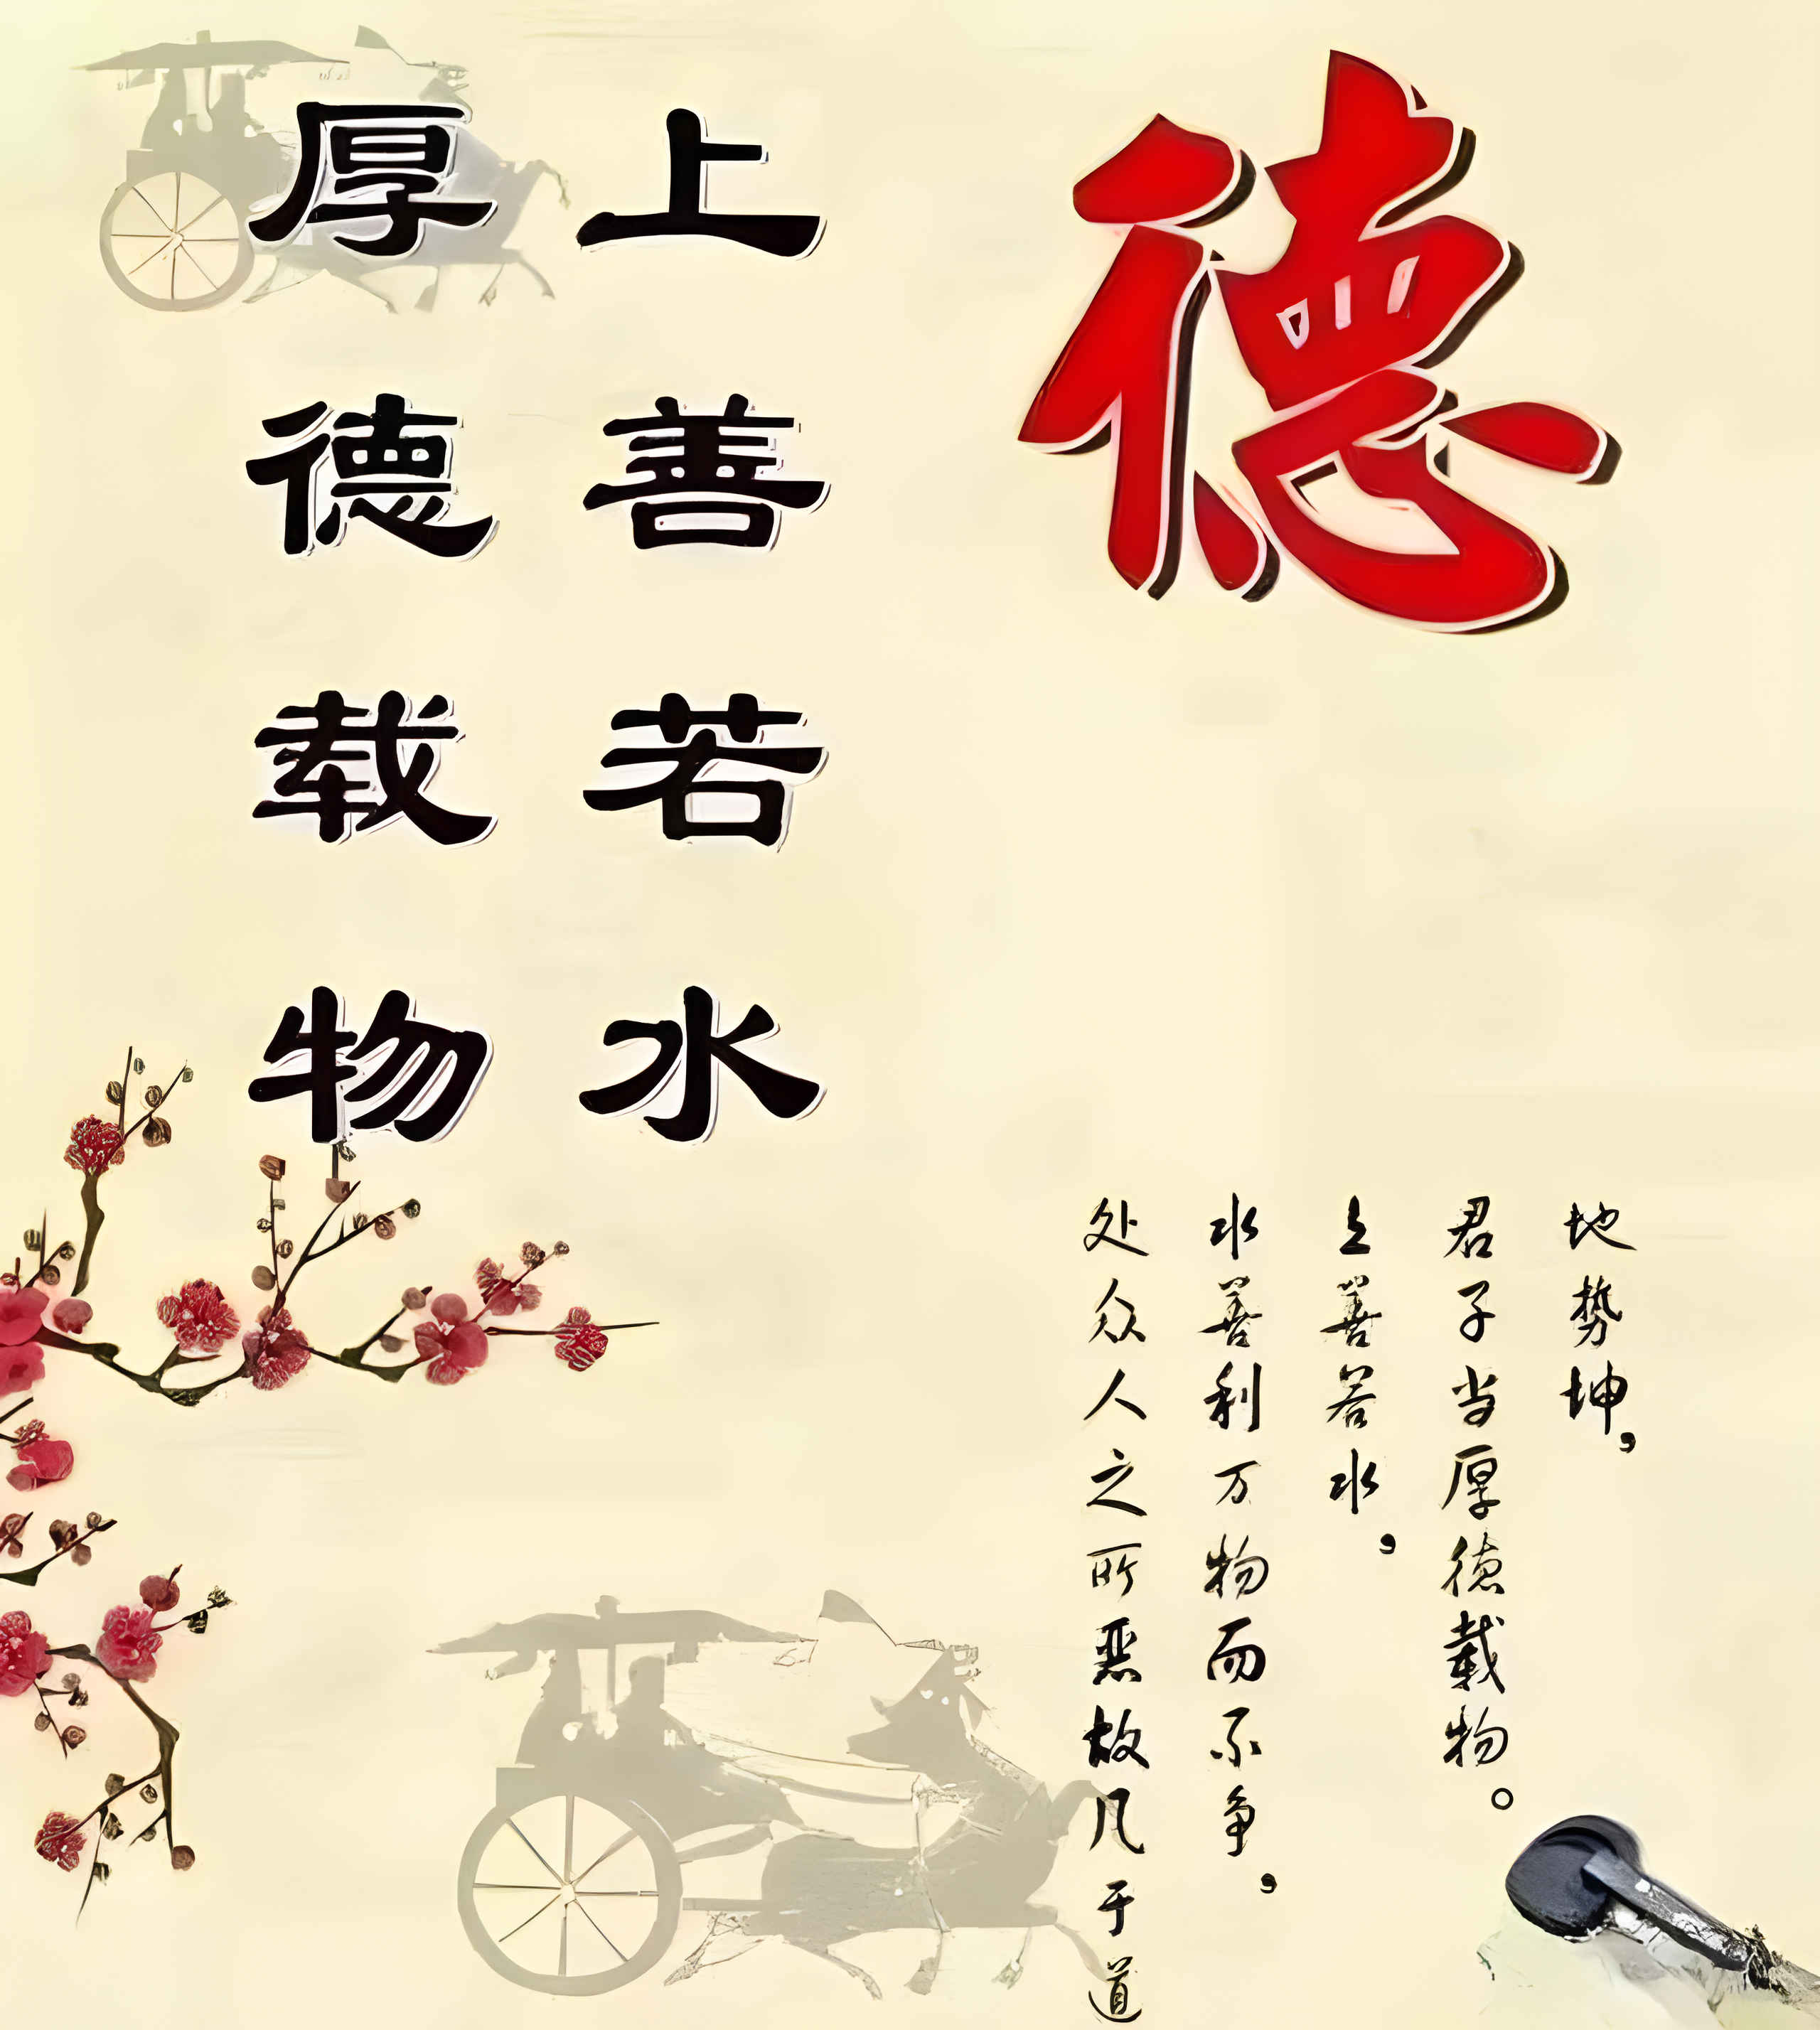 德
上善若水
厚德载物
地势坤，
君子当厚德載物。
上善若水，
水善利万物而不争，
处众人之所恶故几于道